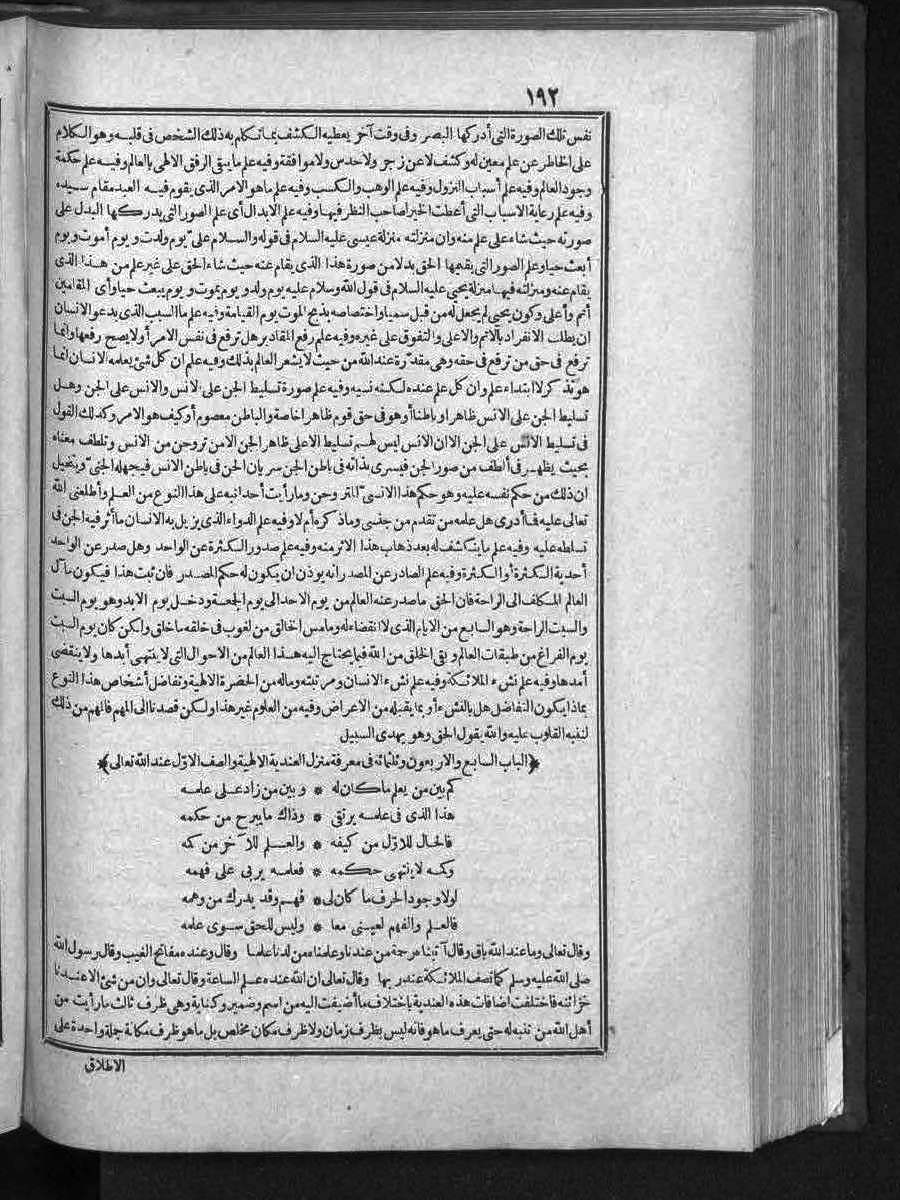 ١٩٢
نفس تلك الصورة التى أدركها البصر وفى وقت آخر يعطيه الكشف بما تكلم به ذلك الشخص فى قلبه وهو الكلام
على الخاطر عن علم معين له وكشف لا عن زجر ولا حدس ولا موافقة وفيه علم ما يبقى الرفق الالهى بالعالم وفيه علم حكمة
وجود العالم وفيه علم أسباب النزول وفيه علم الوهب والكسب وفيه علم ما هو الامر الذى يقوم فيه العبد مقام سيده
وفيه علم رعاية الاسباب التى أعطت الخير لصاحب النظر فيها وفيه علم الابدال أى علم الصور التى يدركها البدل على
صورته حيث شاء على علم منه وان منزلته منزلة عيسى عليه السلام فى قوله والسلام علىّ يوم ولدت و يوم أموت و يوم
أبعث حيا وعلم الصور التى يقيمها الحق بدلا من صورة هذا الذى يقام عنه حيث شاء الحق على غير علم من هذا الذى
يقام عنه ومنزلته فيها منزلة يحيى عليه السلام فى قول الله وسلام عليه يوم ولد و يوم يموت و يوم يبعث حيا وأى المقامين
أتم وأعلى وكون يحيى لم يجعل له من قبل سميا واختصاصه بذبح الموت يوم القيامة وفيه علم ما السبب الذى يدعو الانسان
ان يطلب الانفراد بالاتم والاعلى والتفوق على غيره وفيه علم رفع المقادير هل ترفع فى نفس الامر أو لا يصح رفعها وانما
ترفع فى حق من ترفع فى حقه وهى مقدّرة عند الله من حيث لا يشعر العالم بذلك وفيه علم ان كل شئ يعلمه الانسان انما
هو تذكر لا ابتداء علم وان كل علم عنده لكنه نسيه وفيه علم صورة تسليط الجن على الانس والانس على الجن وهل
تسليط الجن على الانس ظاهر او باطنا أو هو فى حق قوم ظاهر اخاصة والباطن معصوم أو كيف هو الامر وكذلك القول
فى تسليط الانس على الجن الا ان الانس ليس لهم تسليط الا على ظاهر الجن الا من تروحن من الانس وتلطف معناه
بحيث يظهر فى ألطف من صور الجن فيسرى بذاته فى باطن الجن سريان الجن فى باطن الانس فيجهله الجنىّ ويتخيل
ان ذلك من حكم نفسه عليه وهو حكم هذا الانسىّ المتروحن وما رأيت أحدا نبه على هذا النوع من العلم وأطلعنى الله
تعالى عليه فما أدرى هل علمه من تقدم من جنسى وما ذكره أم لا وفيه علم الدواء الذى يزيل به الانسان ما أثر فيه الجن فى
تسلطه عليه وفيه علم ما ينكشف له بعد ذهاب هذا الاثر منه وفيه علم صدور الكثرة عن الواحد وهل صدر عن الواحد
أحدية الكثرة أو الكثرة وفيه علم الصادر عن المصدر انه يوذن ان يكون له حكم المصدر فان ثبت هذا فيكون مآل
العالم المكلف الى الراحة فان الحق ما صدر عنه العالم من يوم الاحد الى يوم الجمعة ودخل يوم الابد وهو يوم السبت
والسبت الراحة وهو السابع من الايام الذى لا انقضاء له وما مس الخالق من لغوب فى خلقه ما خلق ولكن كان يوم السبت
يوم الفراغ من طبقات العالم و بقى الخلق من الله فيما يحتاج اليه هذا العالم من الاحوال التى لا ينتهى أبدها ولا ينقضى
أمدها وفيه علم نشء الملائكة وفيه علم نشء الانسان ومرتبته وماله من الحضرة الالهية وتفاضل أشخاص هذا النوع
بماذا يكون التفاضل هل بالنشء أو بما يقبله من الاعراض وفيه من العلوم غير هذا ولكن قصدنا الى المهم فالمهم من ذلك
لننبه القلوب عليه والله يقول الحق وهو يهدى السبيل
﴿ الباب السابع والاربعون وثلثمائة فى معرفة منزل العندية الالهية والصف الاوّل عند الله تعالى ﴾
كم بين من يعلم ما كان له * و بين من زاد على علمه
هذا الذى فى علمه يرتقى * وذاك ما يبرح من حكمه
فالحال للاوّل من كيفه * والعلم للآخر من كمه
وكمه لا ينتهى حكمه * فعلمه يربى على فهمه
لولا وجود الحرف ما كان لى * فهم وقد يدرك من وهمه
فالعلم والفهم لعينى معا * وليس للحق سوى علمه
وقال تعالى وما عند الله باق وقال آتيناه رحمة من عندنا وعلمناه من لدنا علما وقال وعنده مفاتح الغيب وقال رسول الله
صلى الله عليه وسلم كما تصف الملائكة عند ربها وقال تعالى ان الله عنده علم الساعة وقال تعالى وان من شئ الا عندنا
خزائنه فاختلفت اضافات هذه العندية باختلاف ما أضيفت اليه من اسم وضمير وكناية وهى ظرف ثالث ما رأيت من
أهل الله من تنبه له حتى يعرف ما هو فانه ليس بظرف زمان ولا ظرف مكان مخلص بل ما هو ظرف مكانة جلة واحدة على
الاطلاق